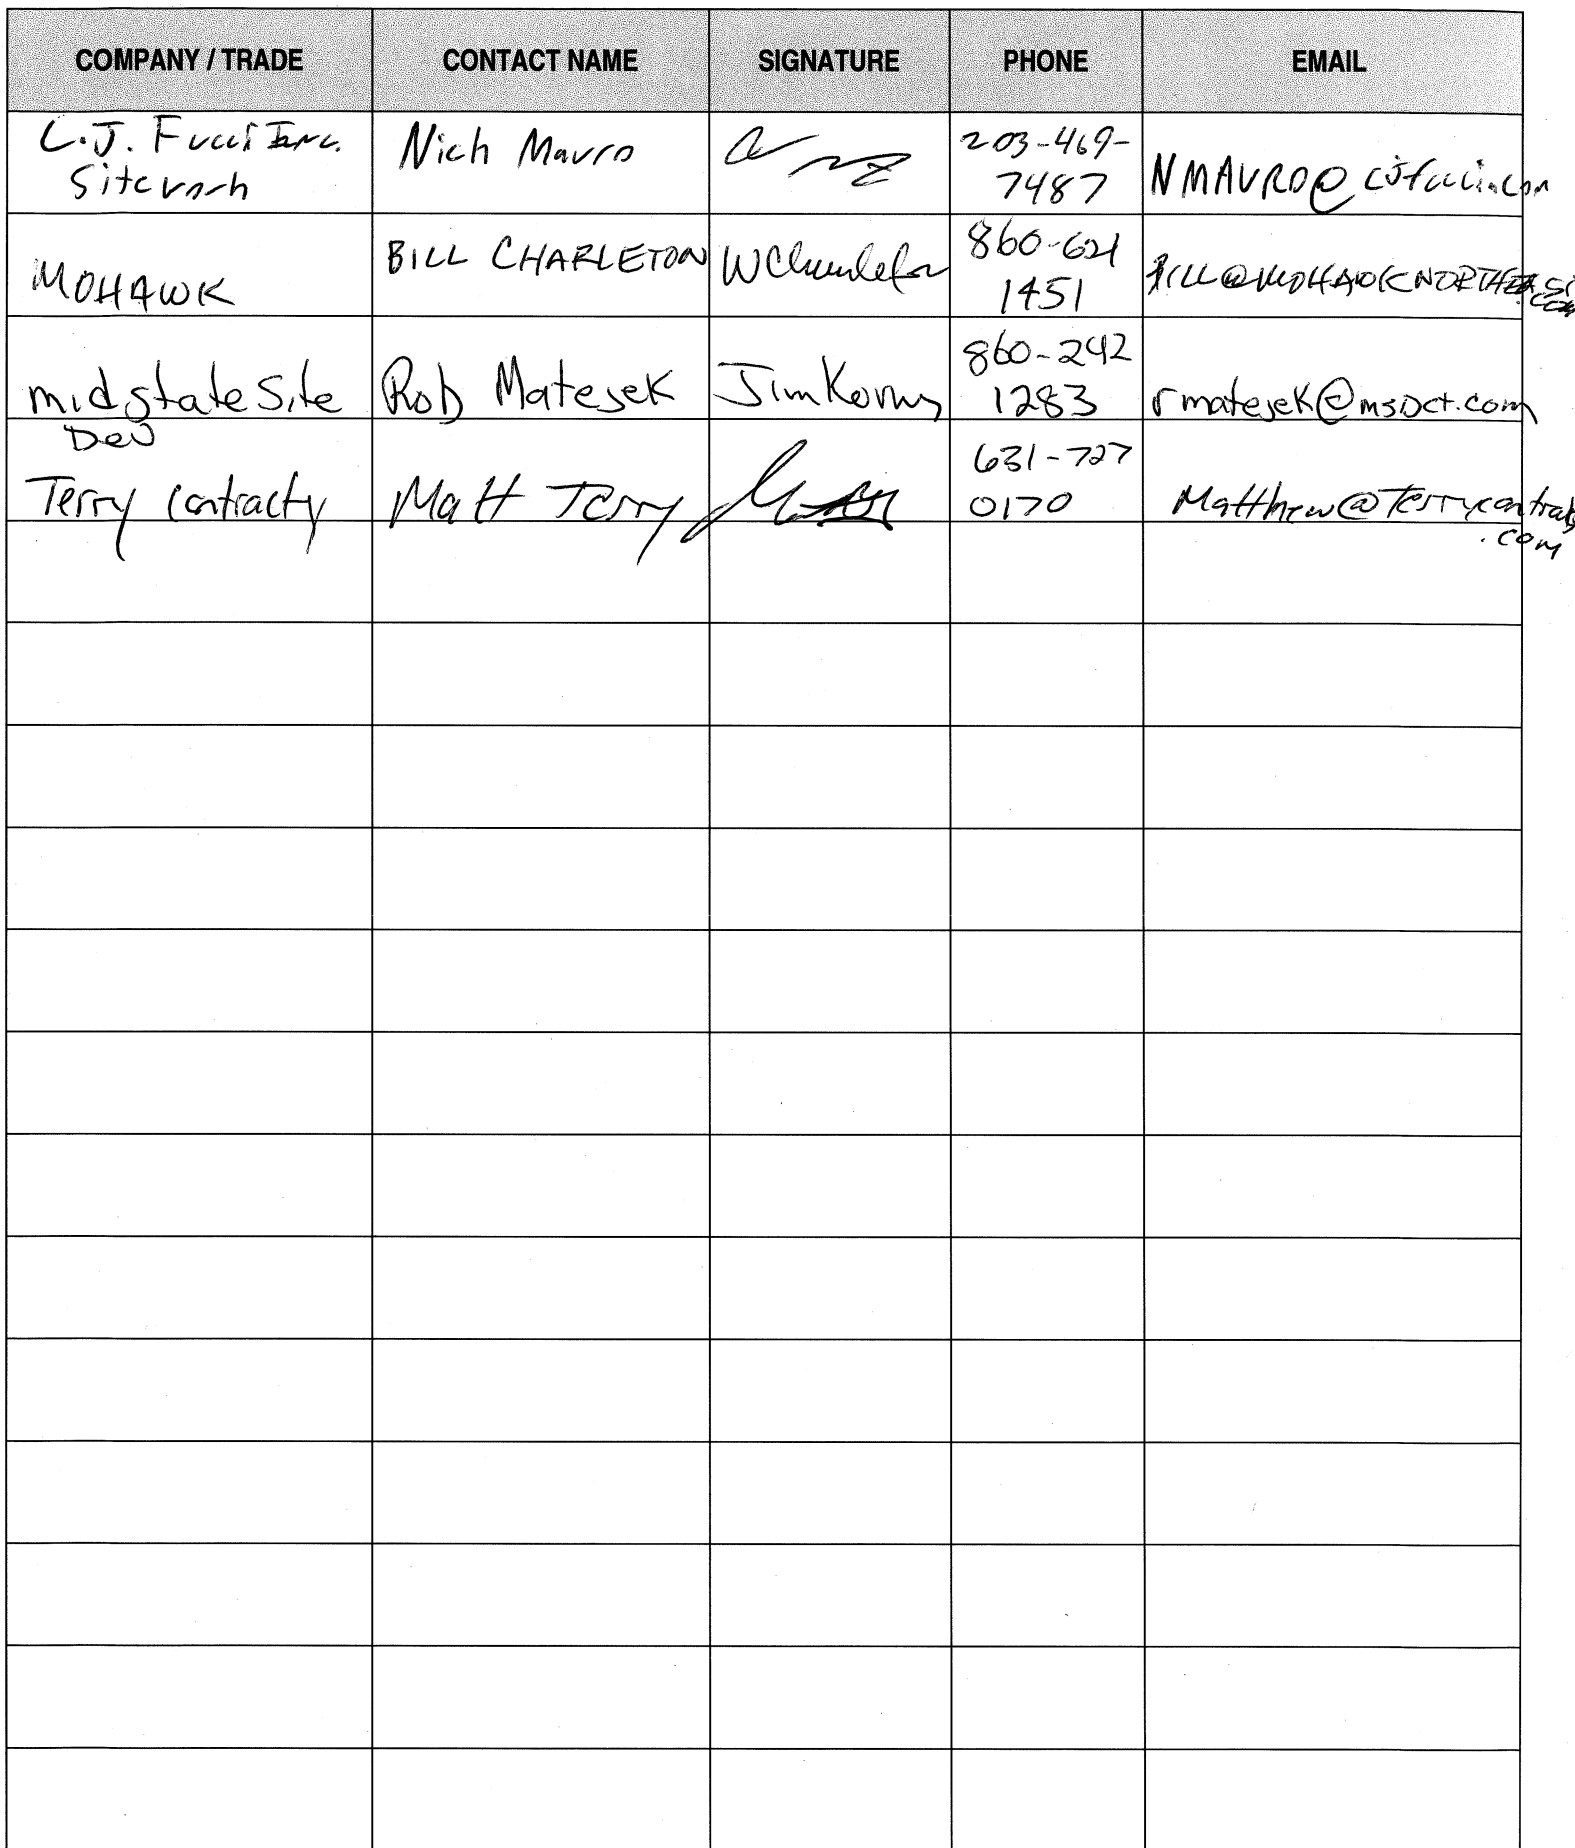 COMPANY / TRADE CONTACT NAME SIGNATURE PHONE EMAIL
C.J. Fucci Inc. Nick Mauro 203-469-
Sitework 7487 NMAURO@cjfucci.com
MOHAWK BILL CHARLETON WCharleton 860-621
1451 BILL@MOHAWKNORTHEAST
.com
midstate Site Rob Matejek Jim 860-242
Dev 1283 rmatejek@msDct.com
Terry Contracting Matt Terry 631-727
0170 Matthew@Terrycontracting
.com